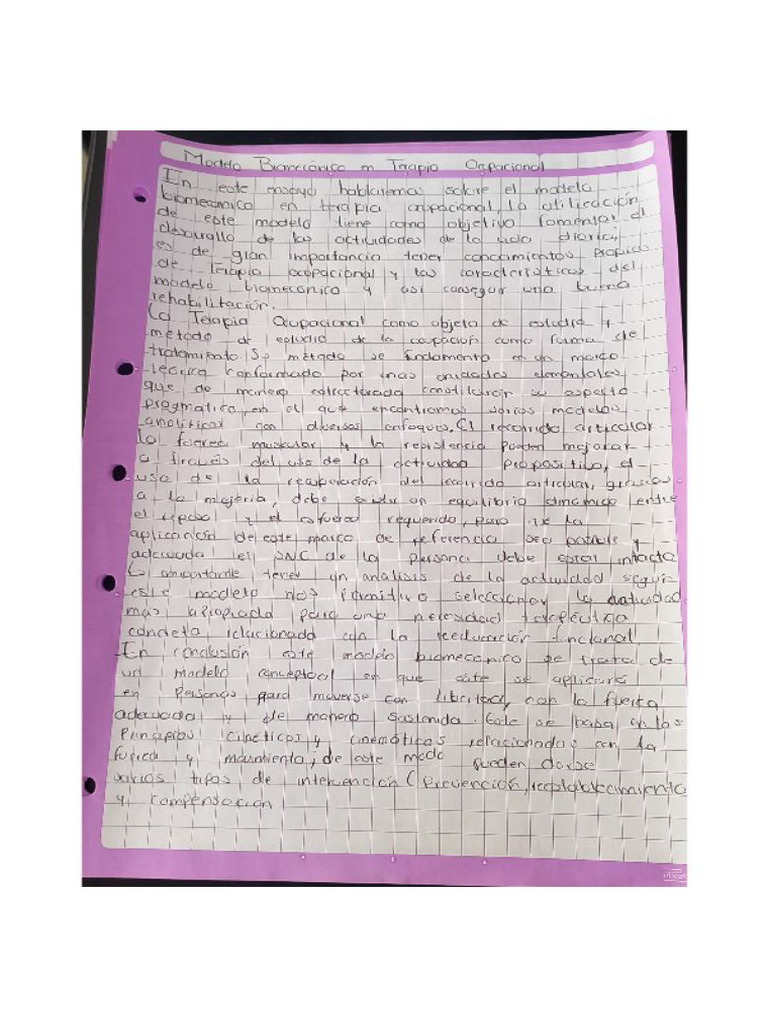 Modelo Biomecánico en Terapia Ocupacional
En este ensayo hablaremos sobre el modelo
biomecanico en terapia ocupacional, la utilización
de este modelo tiene como objetivo fomentar el
desarrollo de las actividades de la vida diaria,
es de gran importancia tener conocimientos propios
de Terapia ocupacional y las caracteristicas del
modelo biomecánico y asi conseguir una buena
rehabilitación.
La Terapia Ocupacional como objeto de estudio y
método de estudio de la ocupación como forma de
tratamiento. Su método se fundamenta en un marco
teórico conformado por unas unidades elementales
que de manera estructurada constituyen su aspecto
pragmático, en el que encontramos varios modelos
analiticos con diversos enfoques. El recorrido articular
la fuerza muscular y la resistencia pueden mejorar
a través del uso de la actividad propositiva, el
uso de la recuperación del recorrido articular, gracias
a la mejoria, debe existir un equilibrio dinámico entre
el reposo y el esfuerzo requerido, para que la
aplicación de este marco de referencia sea posible y
adecuada el SNC de la persona debe estar intacto
Es importante tener un analisis de la actividad segun
este modelo nos permitira seleccionar la actividad
más apropiada para una necesidad terapéutica
concreta relacionada con la reeducación funcional
En conclusión este modelo biomecánico se trata de
un modelo conceptual en que este se aplicará
en Personas para moverse con libertad, con la fuerza
adecuada y de manera sostenida. Este se basa en los
Principios cinéticos y cinemáticas relacionadas con la
fuerza y movimiento, de este modo pueden darse
varios tipos de intervención (Prevención, reestablecimiento
y compensación